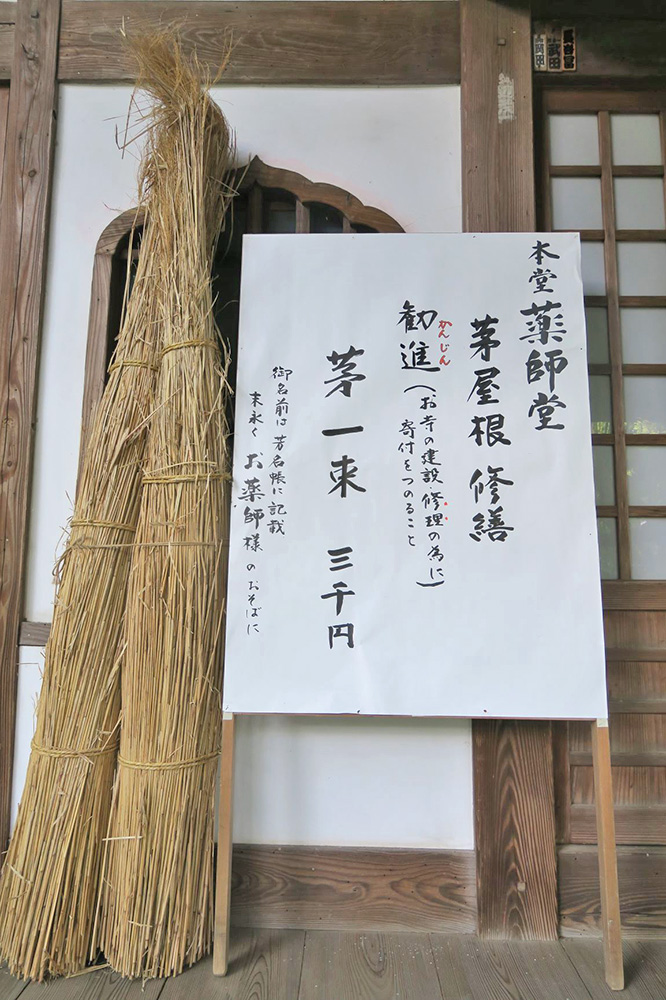 本堂 薬師堂
茅屋根 修繕
かんじん
勧進(お寺の建設修理の為に)
寄付をつのること
茅一束 三千円
御名前は芳名帳に記載
末永く お薬師様 のおそばに